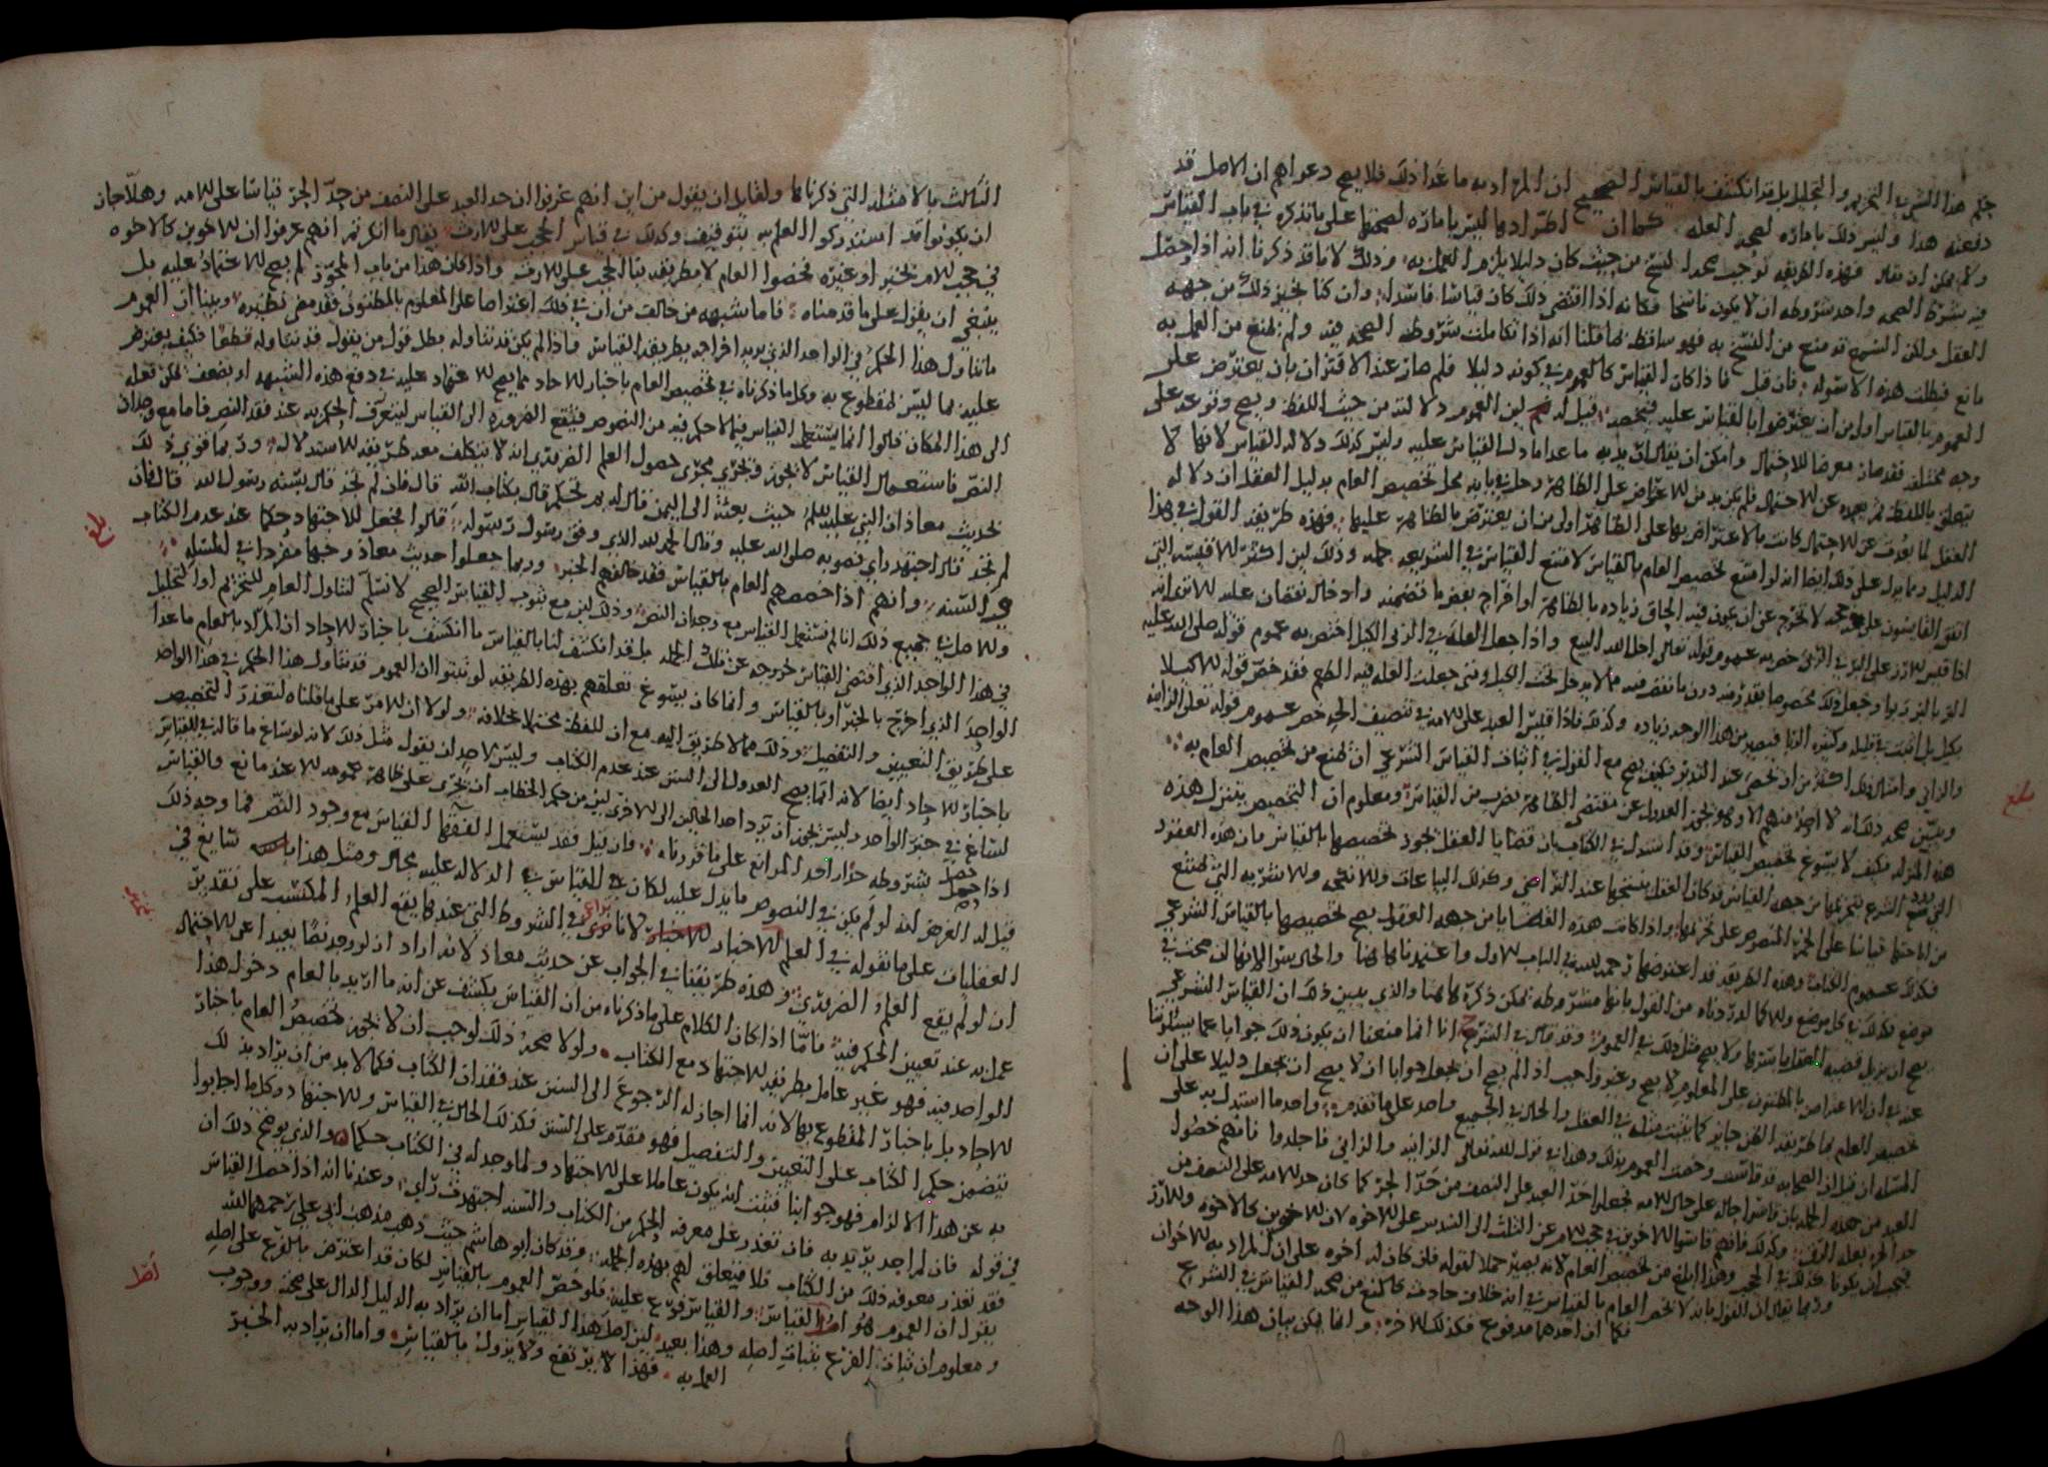 حكم هذا الشيء في التحريم والتحليل بل قد انكشف بالقياس الصحيح ان المراد به ما عدا ذلك فلا يصح دعواهم ان الاصل قد
دفعته هذا وليس ذلك بامارة لصحة العلة كما ان اطرادها ليس بامارة لصحتها على ما نذكره في باب القياس
ولا يمكن ان يقال فهذه الطريقة توجب صحة النسخ من حيث كان دليلا يلزم العمل به وذلك لانا قد ذكرنا انه اذا حصل
فيه شرط الصحة واحد شروطه ان لا يكون ناسخا فكانه اذا اقتضى ذلك كان قياسا فاسدا وان كنا نجيز ذلك من جهة
العقل ولكن السمع قد منع من النسخ به فهو ساقط لما قلنا انه اذا تكاملت شروط الصحة فيه ولم يمنع من العمل به
مانع فبطلت هذه الاسولة فان قيل فاذا كان القياس كالعموم في كونه دليلا فلم صار عند الاقتران بان يعترض على
العموم بالقياس اولى من ان يعترضوا بالقياس عليه فيخصه قيل له لان العموم دلالته من حيث اللفظ ويصح وقوعه على
وجه محتمله فقد صار معرضا للاحتمال وامكن ان يقال اريد به ما عدا ما دل القياس عليه وليس كذلك دلالة القياس لانها لا
يتعلق باللفظ مع بعده عن الاحتمال فلم يكن بد من الاعتراض على الظاهر وحل في بابه محل تخصيص العام بدليل العقل ان دلالة
العقل لما بعدت عن الاحتمال كانت بالاعتراض بها على الظاهر اولى من ان يعترض بالظاهر عليها فهذه طريقة القول في هذا
الدليل ومما يدل على ذلك ايضا انه لو امتنع تخصيص العام بالقياس لامتنع القياس في الشريعة جملة وذلك لان اكثر الاقيسة التي
اتفق القايسون على صحته لا تخرج عن ان يكون فيه الحاق زيادة بالظاهر او اخراج بعض ما تضمنه وادخال نقصان عليه الا ترى انه
اذا قيس الارز على البر في الربا خص به عموم قوله تعالى احل الله البيع واذا جعل العلة في الربى الكيل اختص به عموم قوله صلى الله عليه
البر بالبر ربوا وجعل ذلك مخصوصا بقدر منه دون ما نقص منه مما لا يدخل تحت الكيل ومتى جعلت العلة فيه الطعم فقد خص قوله الا كيلا
بكيل بل اثبت في قليله وكثيره الربا فيصير من هذا الوجه زيادة وكذلك فاذا قيس العبد على الامة في تنصيف الحد خص عموم قوله تعالى الزانية
والزاني وامثال ذلك اكثر من ان تحصى عند التدبر فكيف يصح مع القول في اثبات القياس الشرعي ان يمنع من تخصيص العام به
ويبين صحة ذلك انه لا احد منهم الا وهو يجوز العدول عن مقتضى الظاهر بضرب من القياس ومعلوم ان التخصيص ينزل هذه
هذه المنزلة فكيف لا يسوغ تخصيص القياس وقد استدل في الكتاب بان قضايا العقل يجوز تخصيصها بالقياس فان هذه العقود
من اباحتها قياسا على الخمر المنصوص على تحريمها واذا كانت هذه القضايا من جهة العقول يصح تخصيصها بالقياس الشرعي
فكذلك عموم الكتاب وهذه الطريقة قد اعترضها رحمه الله في الباب الاول واعتمدناها هاهنا والحال سواء
يصح ان يزيل قضية العقل باستمرارها ولا يصح مثل ذلك في العموم وقد قال في الشرح انا انما منعنا ان يكون ذلك جوابا عما يسئلوننا
عنه في ان الاعتراض بالمظنون على المعلوم لا يصح وغير واجب اذا لم يصح ان يجعل جوابا ان لا يصح ان يجعل دليلا على ان
تخصيص العام بما طريقه الظن جايز كما يثبت مثله في العقل والحال في الجميع واحد على ما تقدم واحد ما استدل به على
المسئلة ان قيل ان الصحابة قد قاست وخصت العموم بذلك وهذا في قول الله تعالى الزانية والزاني فاجلدوا فانهم خصوا
العبد من هذه الجملة بان قاسوا حاله على حال الامة فجعلوا حد العبد على النصف من حد الحر كما كان حد الامة على النصف من
حد الحرة بعلة الرق وكذلك فانهم قاسوا الاخوين في حجب الام عن الثلث الى السدس على الاخوة لان الاخوين كالاخوة
فيجب ان يكونا كذلك في الحجب وهذا ابلغ من تخصيص العام لانه يصير حملا لقوله فان كان له اخوة على ان المراد به الاخوان
وربما يقال ان القول بانه لا يخص العام بالقياس في انه خلاف حادث كالمنع من صحة القياس في الشرع
فكما ان احدهما مدفوع فكذلك الاخر وانما يمكن بيان هذا الوجه
بلغ
الثالث بالامثلة التي ذكرناها ولقايل ان يقول من اين انهم عرفوا ان حد العبد على النصف من حد الحر قياسا على الامة وهلا جاز
ان يكونوا قد استدركوا العلم به بتوقيف وكذلك في قياس الحجب على الارث يقال ما انكرتم انهم عرفوا ان الاخوين كالاخوة
في حجب الام بخبر او غيره فخصوا العام لا بطريقة بنا الحجب على الارث واذا كان هذا من باب المجوز لم يصح الاعتماد عليه بل
ينبغي ان يعول على ما قدمناه فاما شبهة من خالف من ان في ذلك اعتراضا على المعلوم بالمظنون فقد مضى نظيره وبينا ان العموم
ما تناول هذا الحكم في الواحد الذي يريد اخراجه بطريقة القياس فاذا لم يكن قد تناوله بطل قول من يقول قد تناوله قطعا فكيف يعترض
عليه بما ليس بمقطوع به وكل ما ذكرناه في تخصيص العام باخبار الاحاد مما يصح الاعتماد عليه في دفع هذه الشبهة او يضعف يمكن نقله
الى هذا المكان قالوا انما يستعمل القياس فيما لا حكم فيه من النصوص فتقع الضرورة الى القياس ليتعرف الحكم به عند فقد النص فاما مع وجدان
النص فاستعمال القياس لا يجوز ويجري مجرى حصول العلم الضروري انه لا يتكلف معه طريقة الاستدلال وربما قوي ذلك
بحديث معاذ ان النبي عليه السلم حيث بعثه الى اليمن قال له بم تحكم قال بكتاب الله قال فان لم تجد قال بسنة رسول الله قال فان
لم تجد قال اجتهد راي فصوبه صلى الله عليه وقال الحمد لله الذي وفق رسول رسوله قالوا فجعل للاجتهاد حكما عند عدم الكتاب
والسنة وانهم اذا خصصهم العام بالقياس فقد خالفهم الخبر وربما جعلوا حديث معاذ وجها مفردا في المسئلة
والاصل في جميع ذلك انا لم نستعمل القياس مع وجدان النص وذلك لان مع ثبوت القياس الصحيح لا نسلم لتناول العام للتحريم او التحليل
في هذا الواحد الذي اقتضى القياس خروجه عن تلك الجملة بل قد انكشف لنا بالقياس ما انكشف باخبار الاحاد ان المراد بالعام ما عدا
الواحد الذي اخرج بالخبر او بالقياس وانما كان يسوغ تعلقهم بهذه الطريقة لو ثبتوا ان العموم قد تناول هذا الحكم في هذا الواحد
على طريق التعيين والتفصيل وذلك مما لا طريق اليه مع ان اللفظ محتملا لخلافه ولولا ان الامر على ما قلناه لتعذر التخصيص
باخبار الاحاد ايضا لانه انما يصح العدول الى السنن عند عدم الكتاب وليس لاحد ان يقول مثل ذلك لانه لو ساغ ما قاله في القياس
لساغ في خبر الواحد وليس يجوز ان ترد احد الحالين الى الاخرى لان من حكم الخطاب ان يجرى على ظاهر عمومه الا عند مانع والقياس
اذا حصل بشروطه حل احد الموانع على ما قررناه فان قيل فقد يستعمل الفقها القياس مع وجود النص فما وجه ذلك
قيل له الغرض انه لو لم يكن في النصوص ما يدل عليه لكان في القياس الدلالة عليه بحال ومثل هذا سايغ في
العقليات على ما نقوله في العلم للاخبار لانا نراعي في الشروط التي عندها يقع العلم المكتسب على تقدير
ان لو لم يقع العلم الضروري وهذه طريقتنا في الجواب عن حديث معاذ لانه اراد ان لو وجد نصا بعيدا عن الاحتمال
عمل به عند تعيين الحكم فيه فاما اذا كان الكلام على ما ذكرناه من ان القياس يكشف عن انه ما اريد بالعام دخول هذا
الواحد فيه فهو غير عامل بطريقة الاجتهاد مع الكتاب ولولا صحة ذلك لوجب ان لا يجوز تخصيص العام باخبار
الاحاد بل باخبار المقطوع بها لانه انما اجاز له الرجوع الى السنن عند فقدان الكتاب فكما لا بد من ان يراد بذلك
يتضمن حكم الكتاب على التعيين والتفصيل فهو مقدم على السنن فكذلك الحال في القياس والاجتهاد وكل ما اجابوا
به عن هذا الالزام فهو جوابنا فثبت انه يكون عاملا على الاجتهاد ولما وجد له في الكتاب حكما والذي يوضح ذلك ان
في قوله فان لم اجد يريد به فان تعذر على معرفة الحكم من الكتاب والسنة اجتهدت راي وعندنا انه اذا حصل القياس
فقد تعذر معرفة ذلك من الكتاب فلا يتعلق لهم بهذه الجملة وقد كان ابو هاشم حيث ذهب مذهب ابي علي رحمهما الله
يقول ان العموم هو اصل القياس والقياس فرع عليه فلو خص العموم بالقياس لكان قد اعترض بالفرع على اصله
ومعلوم ان ثبات الفرع بثبات اصله وهذا بعيد لان اصل هذا القياس اما ان يراد به الدليل الدال على صحته ووجوب
العمل به فهذا لا يرتفع ولا يزول بالقياس واما ان يراد به الخبر
بلغ